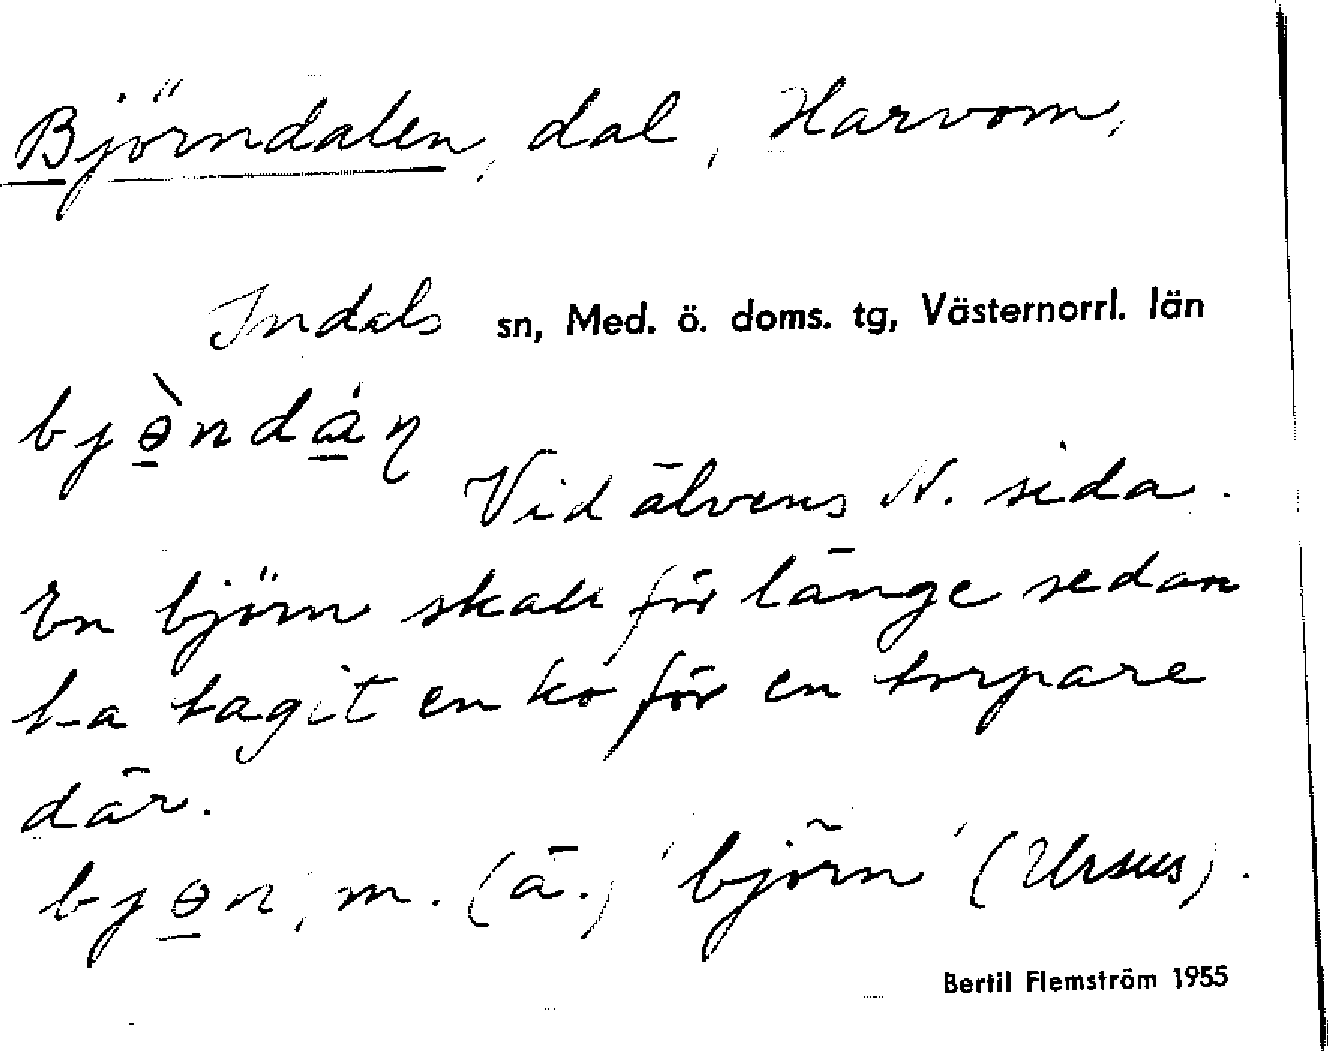 Björndalen, dal, Harvom,
Indals sn, Med. ö. doms. tg, Västernorrl. län
bjə̀ndáɳ
Vid älvens N. sida.
En björn skall för länge sedan
ha tagit en ko för en torpare
där.
bjən, m. (ä.) 'björn' (Ursus).
Bertil Flemström 1955